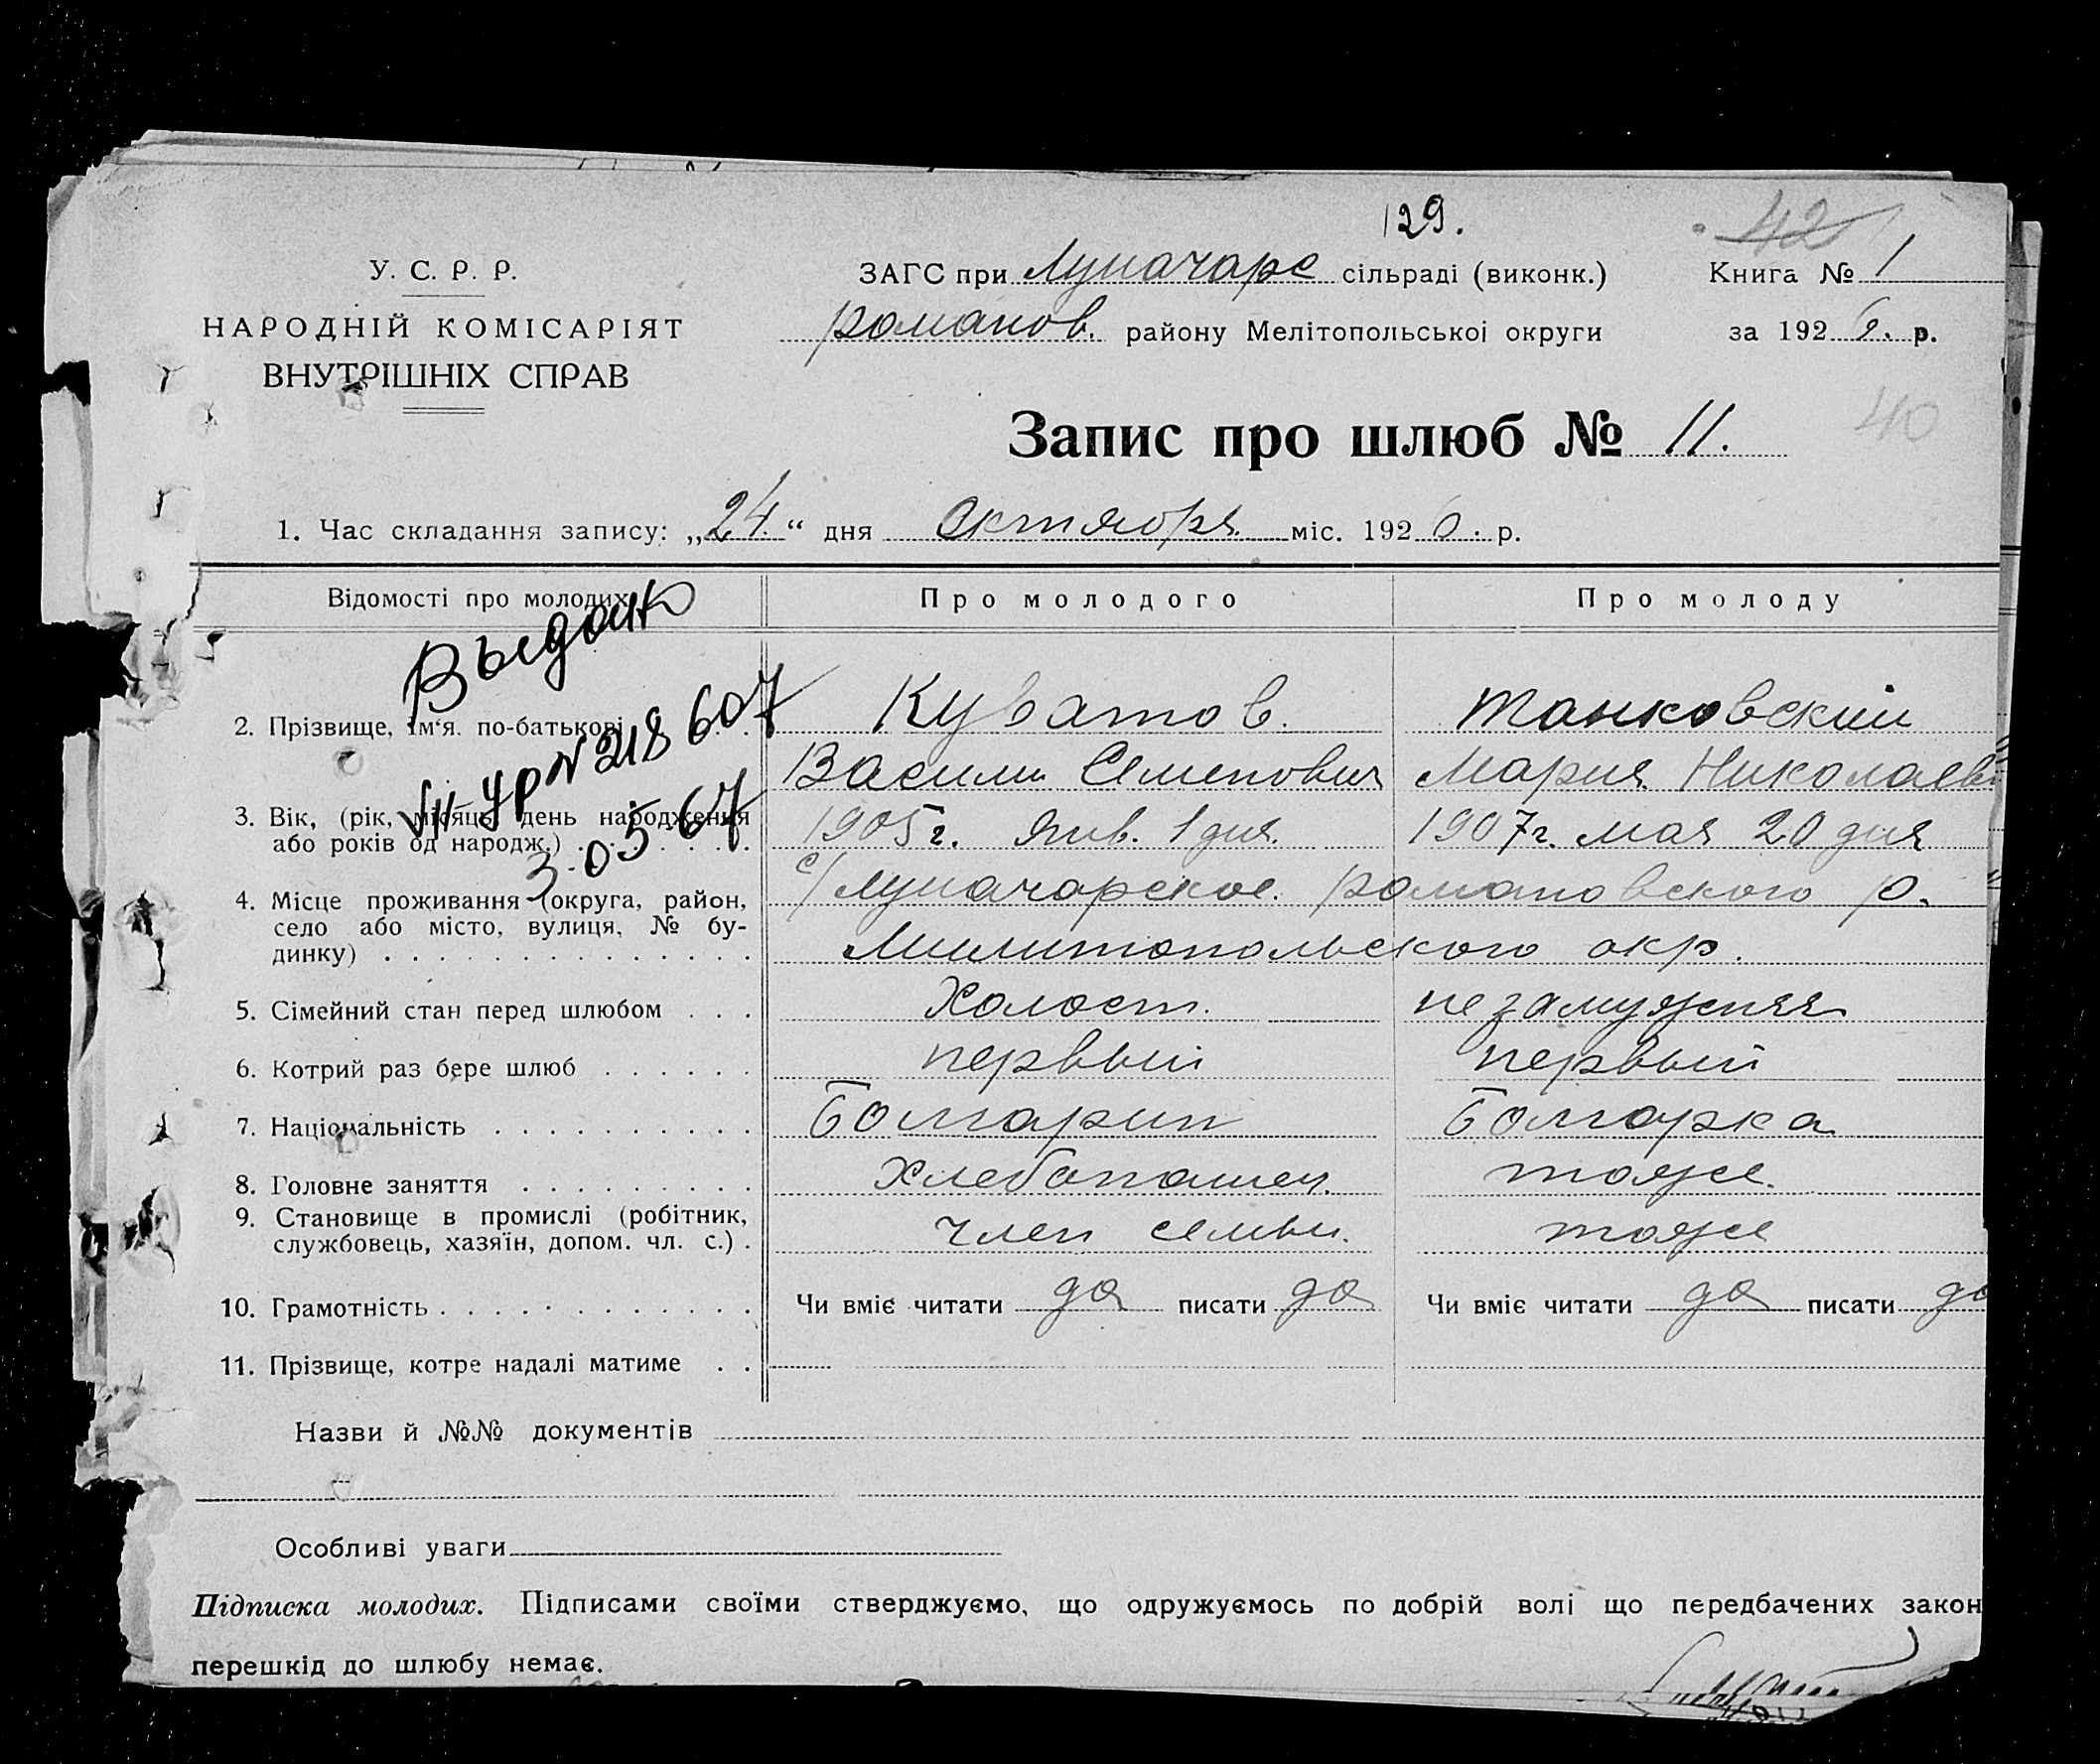 129.
42
У. С. Р. Р.
ЗАГС при Луначарс сільраді (виконк.)
Книга № 1
НАРОДНІЙ КОМІСАРІЯТ
романов. району Мелітопольської округи
за 1926. р.
ВНУТРІШНІХ СПРАВ
Запис про шлюб № 11.
40
1. Час складання запису: „24.“ дня Октября. міс. 1926. р.
Відомості про молодих
Про молодого
Про молоду
Выдано
VII УР № 218607
3.05.67
2. Прізвище, ім'я. по-батькові
Куватов.
Танковский
Васили Семенович
Мария Николаев
3. Вік, (рік, місяць, день народження
або років од народж.)
1905г. Янв. 1 дня.
1907г. мая 20 дня
4. Місце проживання (округа, район,
село або місто, вулиця, № бу-
динку)
с/Луначарское. романовского р.
Милитопольского окр.
5. Сімейний стан перед шлюбом
Холост.
незамужняя
6. Котрий раз бере шлюб
первый
первый
7. Національність
Болгарин
Болгарка
8. Головне заняття
Хлебопашец.
тоже.
9. Становище в промислі (робітник,
службовець, хазяїн, допом. чл. с.)
член семьи.
тоже
10. Грамотність
Чи вміє читати да писати да
Чи вміє читати да писати да
11. Прізвище, котре надалі матиме
Назви й №№ документів
Особливі уваги
Підписка молодих. Підписами своїми стверджуємо, що одружуємось по добрій волі що передбачених закон
перешкід до шлюбу немає.